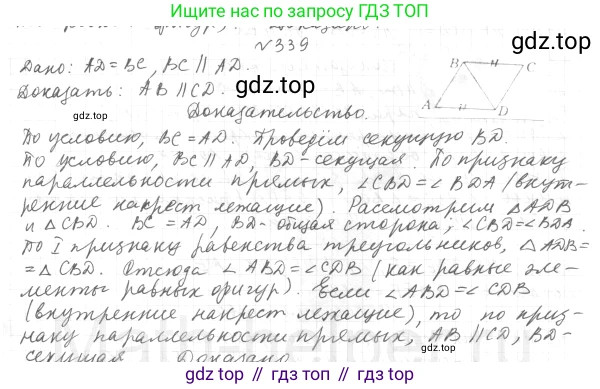 Ищите по запросу ГДЗ ТОП
№339
gdz.top
Дано: AD = BC, BC || AD.
Доказать: AB || CD.
Доказательство.
B C
A D
По условию, BC = AD. Проведём секущую BD.
По условию, BC || AD, BD - секущая. По признаку
параллельности прямых, ∠CBD = ∠BDA (внут-
ренние накрест лежащие). Рассмотрим △ADB
и △CBD. BC = AD, BD - общая сторона; ∠CBD = ∠BDA.
По I признаку равенства треугольников, △ADB =
= △CBD. Отсюда ∠ABD = ∠CDB (как равные эле-
менты равных фигур). Если ∠ABD = ∠CDB
(внутренние накрест лежащие), то по приз-
наку параллельности прямых, AB || CD, BD -
секущая. Доказано.
gdz.top
gdz.top
gdz.top
gdz.top // gdz.top // gdz.top